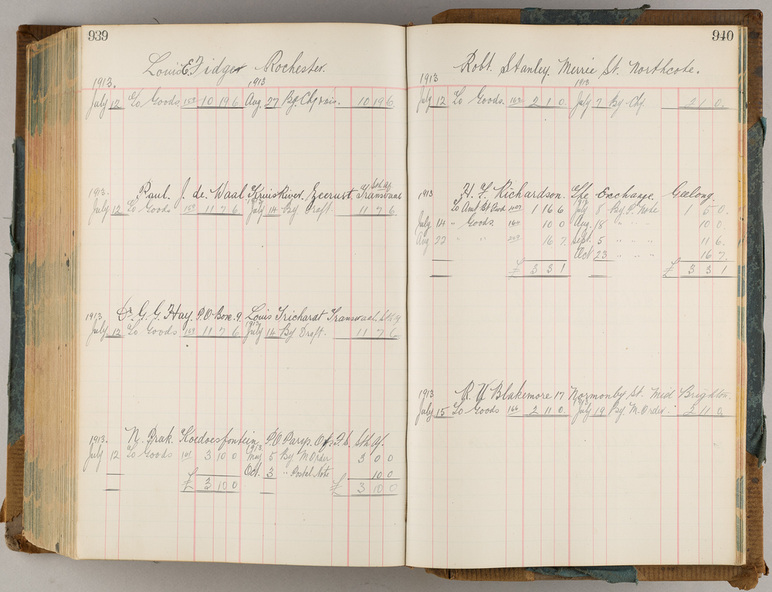 939
Louis E Fidger Rochester.
1913. 1913
July 12 To Goods 163 10 19 6 Aug 27 By Chq 10 19 6
1913.
Paul. J. de Waal Kruis River, Zeerust, Transvaal
July 12 To Goods 163 11 7 6 July 14 By Draft 11 7 6
1913
G. G. Hay. P.O. Box. 9 Louis Trichardt Transvaal
July 12 To Goods 163 11 7 6 July 14 By Draft. 11 7 6
1913.
N. Brak Koedoesfontein P.O. Parys. Sth Af.
July 12 To Goods 163 3 10 0 5 By M Order 3 0 0
Oct. 3 " Postal Note 10 0
£ 3 10 0 £ 3 10 0
940
Robt. Stanley Merrie St. Northcote.
1913 1913
July 12 To Goods. 163 2 1 0 July 7 By Chq 2 1 0
1913
H. F. Richardson. The Exchange. Geelong.
To Amt 1 6 6 July 8 By P. Note 1 5 0
July 14 " Goods 10 0 Aug 18 " 10 0
Aug 22 " " 16 7 Sept 5 " " " 11 6
Oct 23 " " " 16 7
£ 3 3 1 £ 3 3 1
1913
Blakemore 17 Normanby St. Mid Brighton.
July 15 To Goods 164 2 11 0 July 19 By M. Order 2 11 0